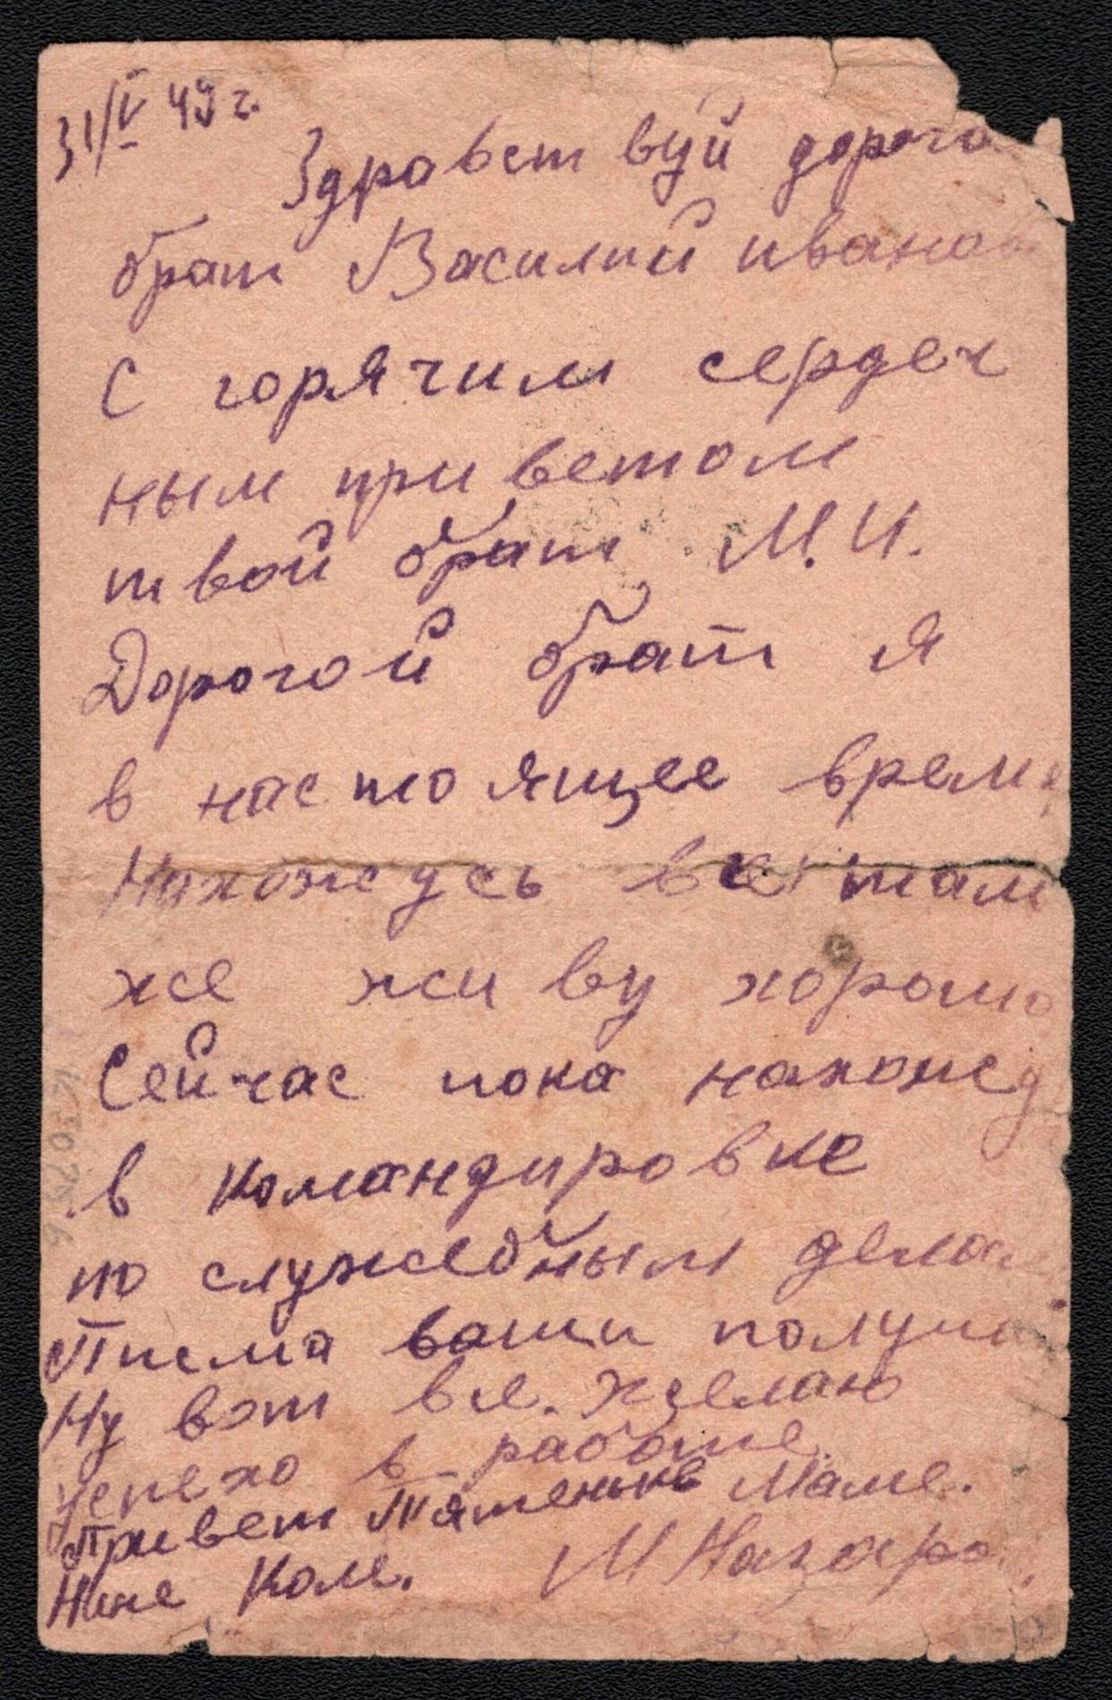 31/V 49 г.
Здравствуй дорого
брат Василий иванов
С горячим сердеч
ным приветом
твой брат М. И.
Дорогой брат я
в настоящее время
Нахожусь все там
же живу хорошо
Сейчас пока нахожу
в командировке
по служебным дела
Писма ваши получи
Ну вот все. Желаю
успеха в работе.
Привет Тятеньке Маме.
Нине Коле. М Назаро